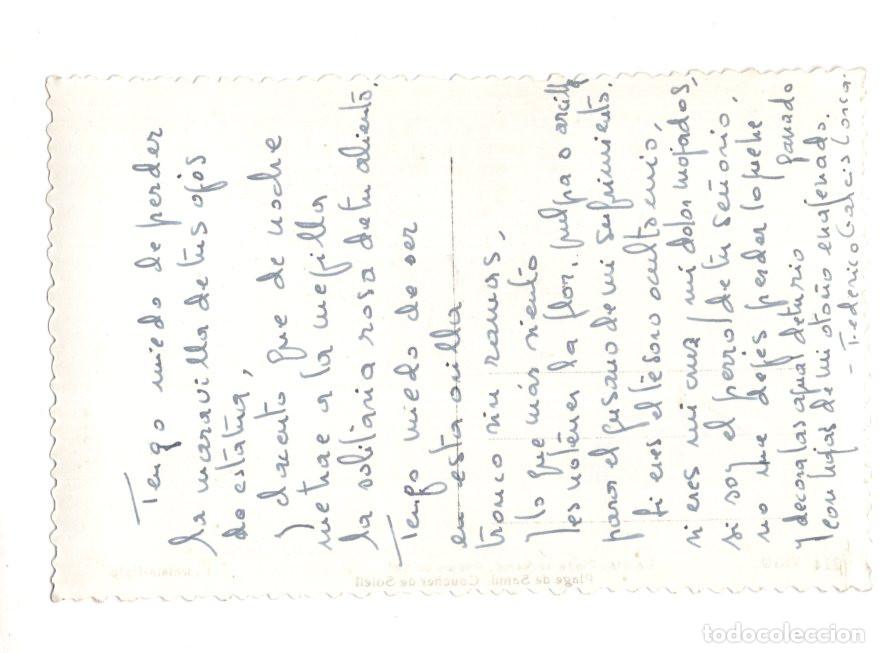 Tengo miedo de perder
la maravilla de tus ojos
de estatua,
y el acento que de noche
me trae a la mejilla
la solitaria rosa de tu aliento.
Tengo miedo de ser
en esta orilla
tronco sin ramas,
y lo que más siento
es no tener la flor, pulpa o arcilla
para el gusano de mi sufrimiento.
Si eres el tesoro oculto mío,
si eres mi cruz y mi dolor mojados,
si soy el perro de tu señorío,
no me dejes perder lo que he
ganado
y decora las aguas de tu río
con hojas de mi otoño enajenado.
- Federico García Lorca.
Plage de Samil Coucher de Soleil
todocoleccion